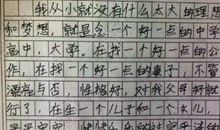 我从小就没有什么太大的理想
和梦想，就是念一个好一点的中学
高中，大学，在找一个好一点的公
作，在找一个好一点的妻子，不管
漂亮与否，性格好，对我父母好就
行了，在生一个儿子和一个女儿，